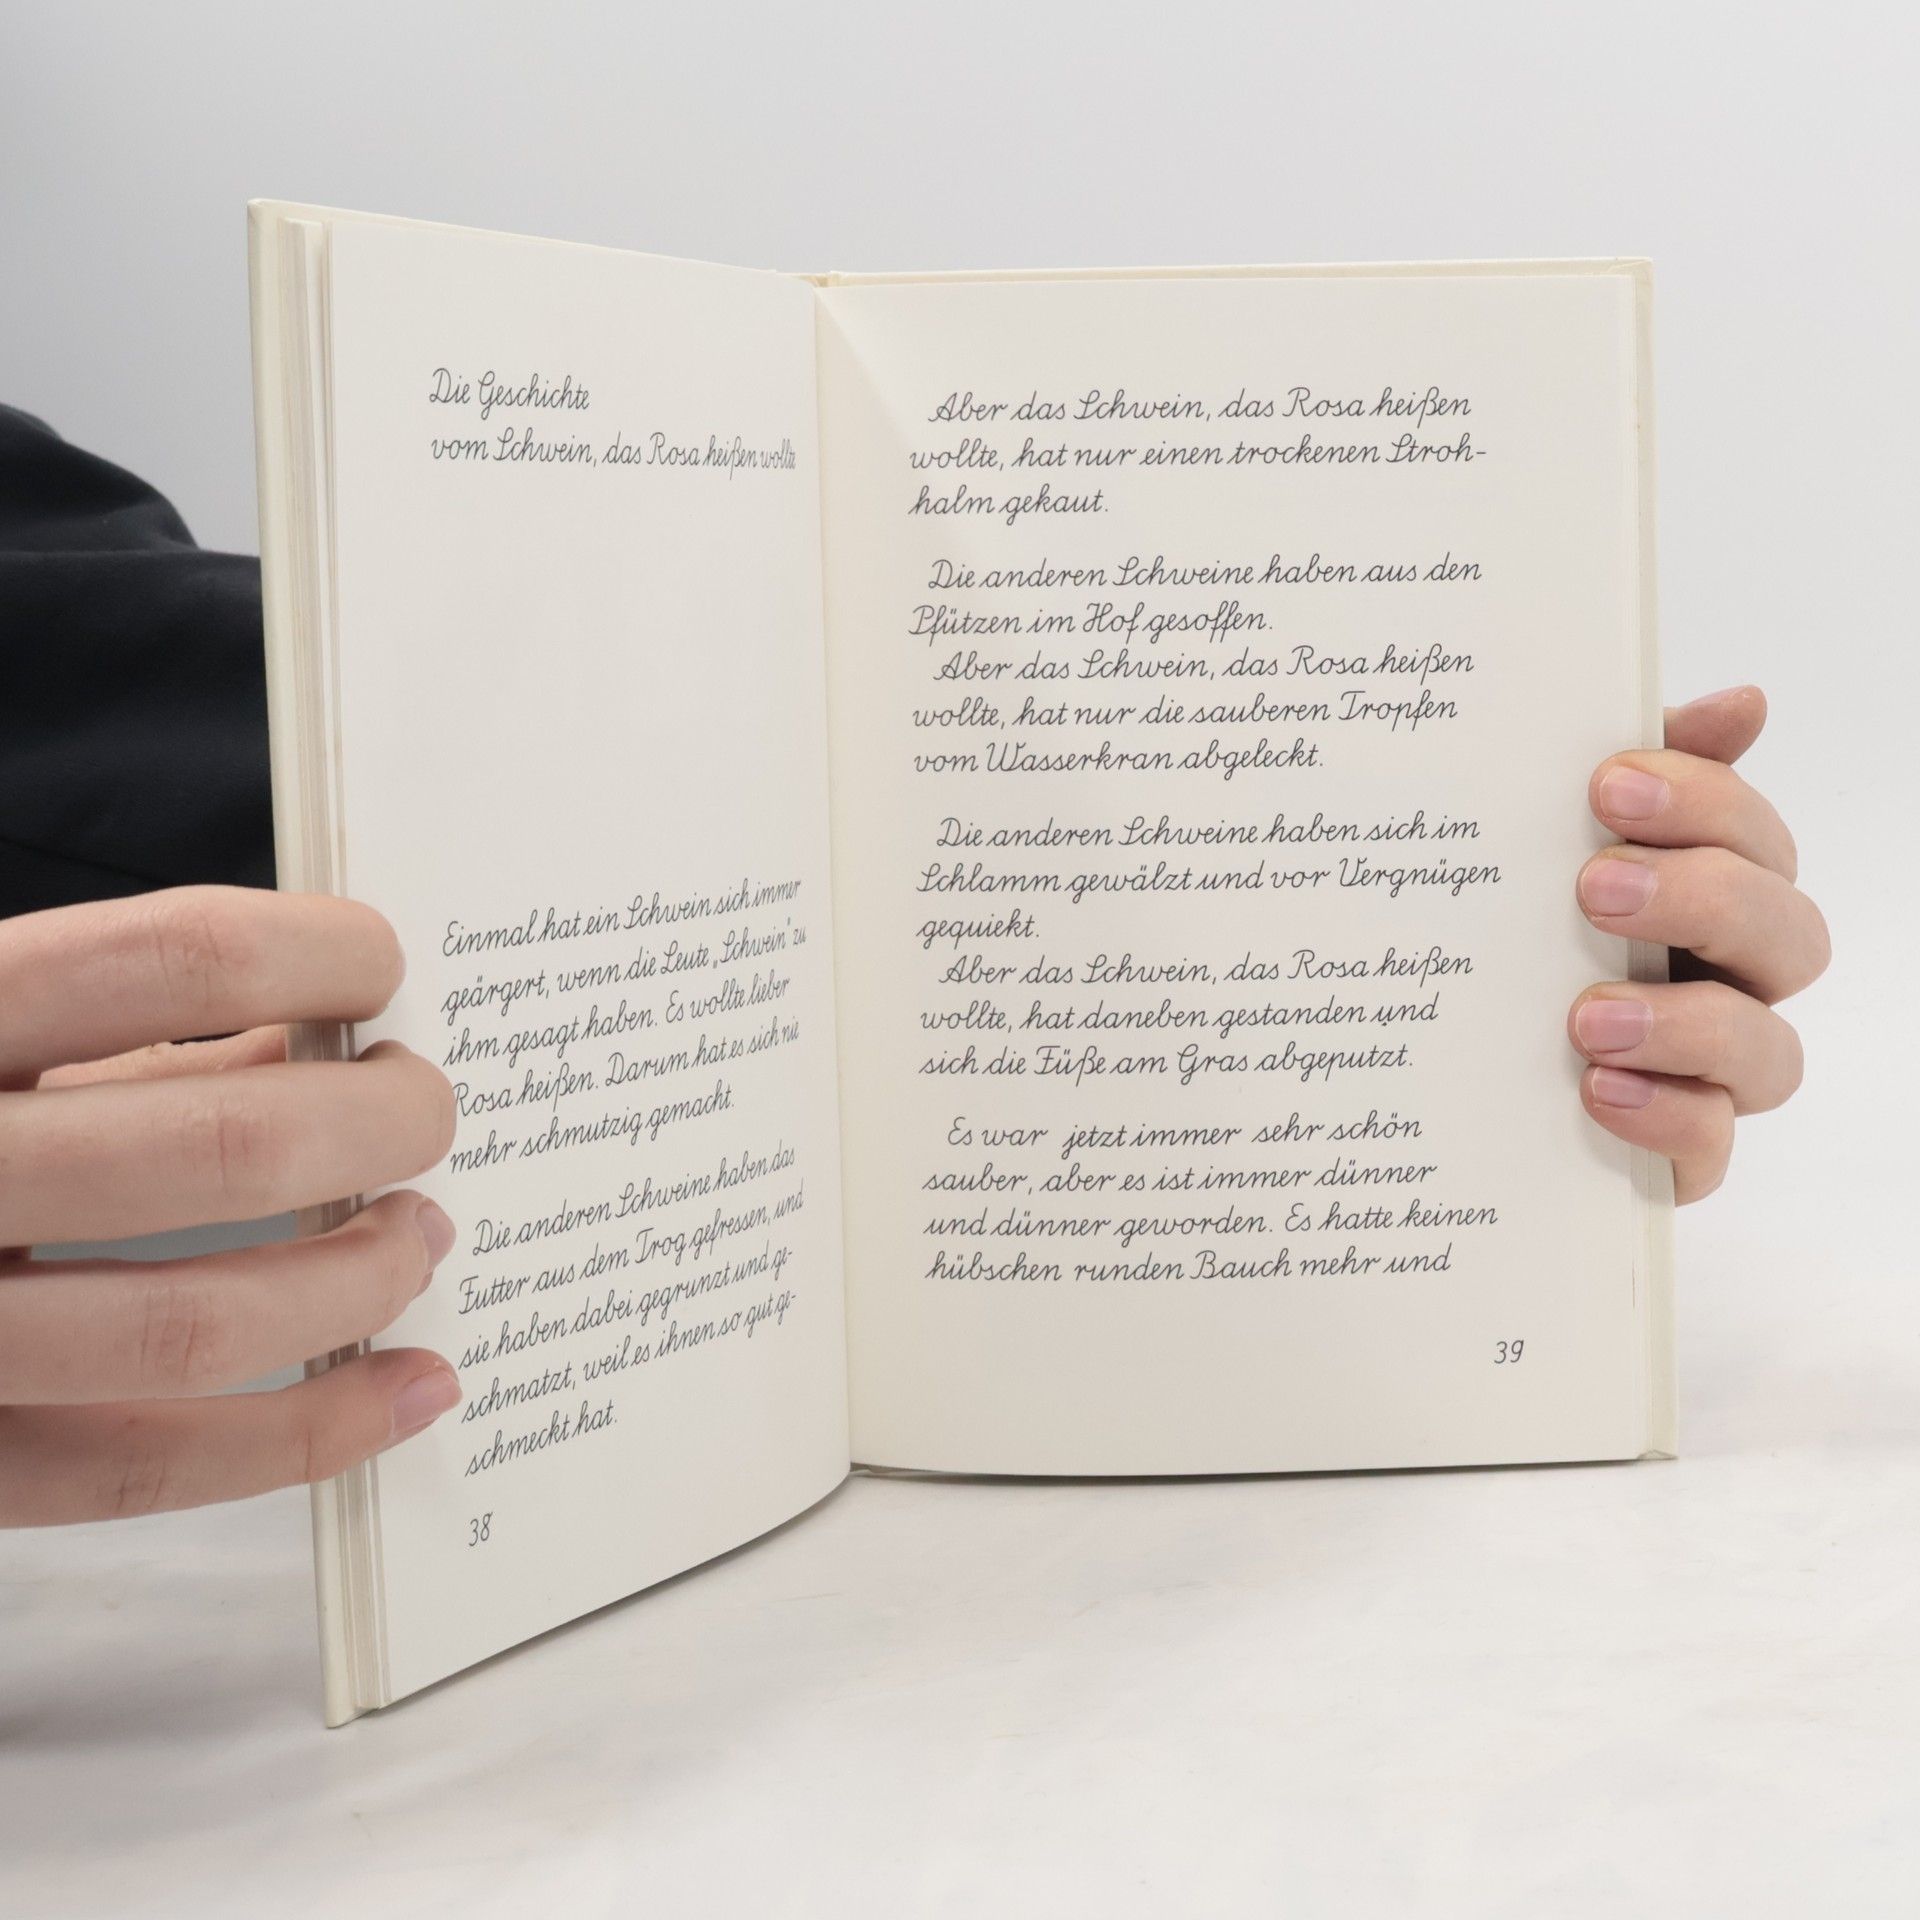 Die Geschichte
vom Schwein, das Rosa heißen wollte
Einmal hat ein Schwein sich immer
geärgert, wenn die Leute „Schwein" zu
ihm gesagt haben. Es wollte lieber
Rosa heißen. Darum hat es sich nie
mehr schmutzig gemacht.
Die anderen Schweine haben das
Futter aus dem Trog gefressen, und
sie haben dabei gegrunzt und ge-
schmatzt, weil es ihnen so gut ge-
schmeckt hat.
38
Aber das Schwein, das Rosa heißen
wollte, hat nur einen trockenen Stroh-
halm gekaut.
Die anderen Schweine haben aus den
Pfützen im Hof gesoffen.
Aber das Schwein, das Rosa heißen
wollte, hat nur die sauberen Tropfen
vom Wasserkran abgeleckt.
Die anderen Schweine haben sich im
Schlamm gewälzt und vor Vergnügen
gequiekt.
Aber das Schwein, das Rosa heißen
wollte, hat daneben gestanden und
sich die Füße am Gras abgeputzt.
Es war jetzt immer sehr schön
sauber, aber es ist immer dünner
und dünner geworden. Es hatte keinen
hübschen runden Bauch mehr und
39